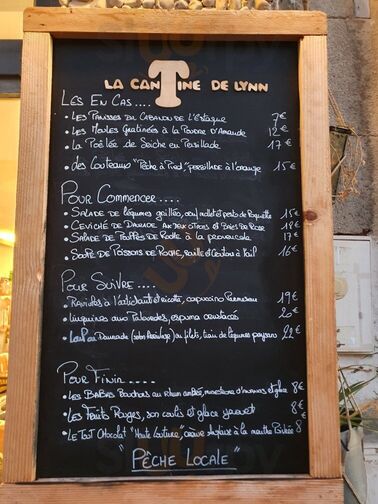 LA CANTINE DE LYNN
LES EN CAS....
• LES PANISSES DU CABANON DE L'ESTAQUE 7€
• LES MOULES GRATINÉES À LA POUDRE D'AMANDE 12€
• LA POÊLÉE DE SEICHE EN PERSILLADE 17€
• DES COUTEAUX "PÊCHE À PIED", PERSILLADE À L'ORANGE 15€
POUR COMMENCER....
• SALADE DE LÉGUMES GRILLÉS, OEUF MOLLET ET PESTO DE ROQUETTE 15€
• CEVICHÉ DE DAURADE AUX DEUX CITRONS ET BAIES ROSE 18€
• SALADE DE POULPES DE ROCHE À LA PROVENÇALE 17€
• SOUPE DE POISSONS DE ROCHE, ROUILLE ET CROUTONS À L'AIL 16€
POUR SUIVRE....
• RAVIOLES À L'ARTICHAUT ET RICOTTA, CAPUCCINO PARMESAN 19€
• LINGUINES AUX PALOURDES, ESPUMA CRUSTACÉS 20€
• LOUP OU DAURADE (SELON ARRIVAGE) OU FILETS, TIAN DE LÉGUMES PAYSAN 22€
POUR FINIR....
• LES BABAS BOUCHONS AU RHUM AMBRÉ, ET GLACE 8€
• LES FRUITS ROUGES, SON COULIS ET GLACE YAOURT 8€
• LE TOUT CHOCOLAT "HAUTE COUTURE", CRÈME À LA MENTHE POIVRÉE 8
"PÊCHE LOCALE"